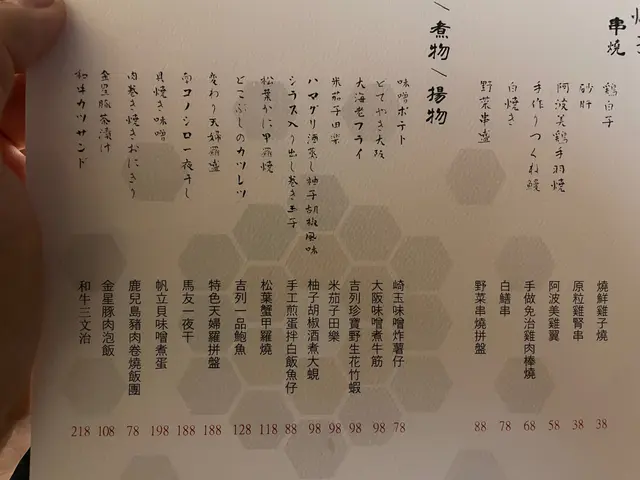 串燒
鶏白子
燒鮮雞子燒
38
砂肝
原粒雞腎串
38
阿波美鶏手羽焼
阿波美雞翼
58
手作りつくね鰻
手做免治雞肉棒燒
68
白焼き
白鱔串
78
野菜串盛
野菜串燒拼盤
88
\煮物\揚物
味噌ポテト
崎玉味噌炸薯仔
78
どてやき大阪
大阪味噌煮牛筋
98
大海老フライ
吉列珍寶野生花竹蝦
98
米茄子田楽
米茄子田樂
98
ハマグリ酒蒸し柚子胡椒風味
柚子胡椒酒煮大蜆
98
シラス入り出し巻き玉子
手工煎蛋拌白飯魚仔
88
松葉かに甲羅焼
松葉蟹甲羅燒
118
とこぶしのカツレツ
吉列一品鮑魚
128
変わり天婦羅盛
特色天婦羅拼盤
188
南コノシロ一夜干し
馬友一夜干
188
貝焼き味噌
帆立貝味噌煮蛋
198
肉巻き焼きおにぎり
鹿兒島豬肉卷燒飯團
78
金星豚茶漬け
金星豚肉泡飯
108
和牛カツサンド
和牛三文治
218